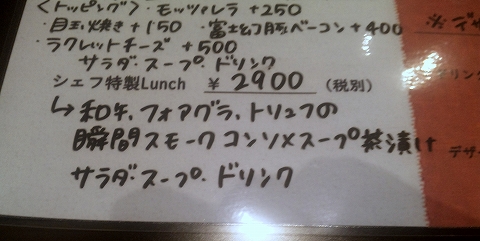 〈トッピング〉・モッツァレラ +250
・目玉焼き+150 ・富士幻豚ベーコン+400
・ラクレットチーズ +500
サラダ・スープ・ドリンク
シェフ特製Lunch ¥2900 (税別)
↳和牛、フォアグラ、トリュフの
瞬間スモークコンソメスープ茶漬け
サラダ・スープ・ドリンク
リン
デザ